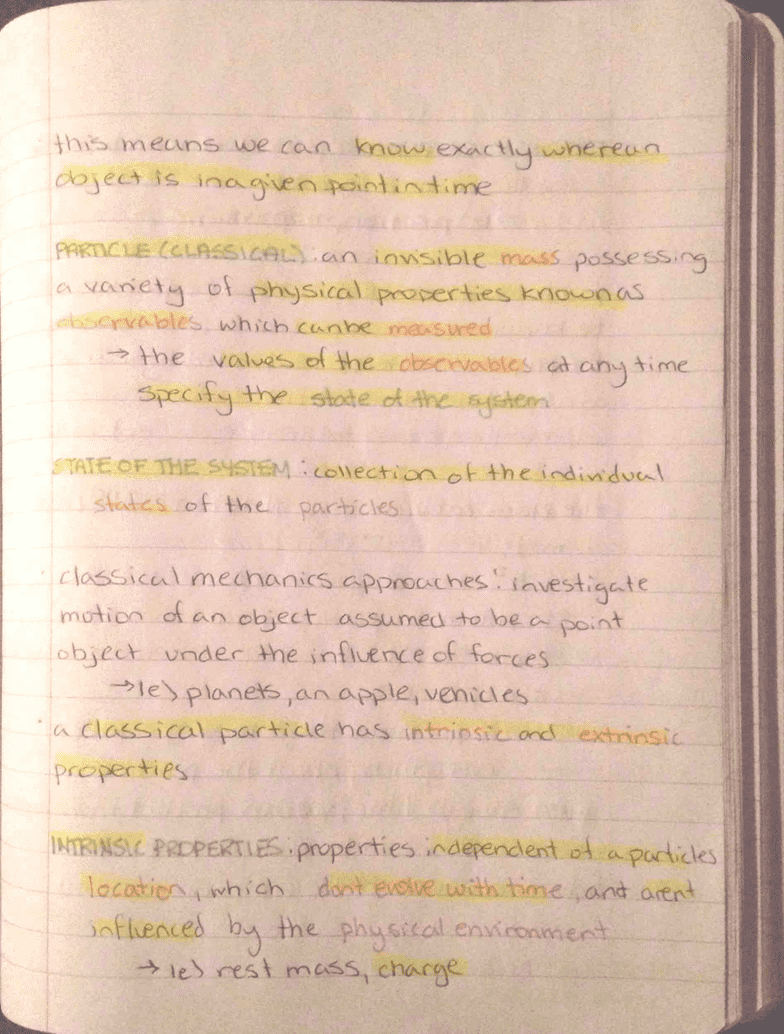 this means we can know exactly where an
object is in a given point in time
PARTICLE (CLASSICAL): an invisible mass possessing
a variety of physical properties known as
observables which can be measured
→ the values of the observables at any time
specify the state of the system
STATE OF THE SYSTEM: collection of the individual
states of the particles
classical mechanics approaches: investigate
motion of an object assumed to be a point
object under the influence of forces
→ ie) planets, an apple, vehicles
a classical particle has intrinsic and extrinsic
properties
INTRINSIC PROPERTIES: properties independent of a particles
location, which dont evolve with time, and arent
influenced by the physical environment
→ ie) rest mass, charge